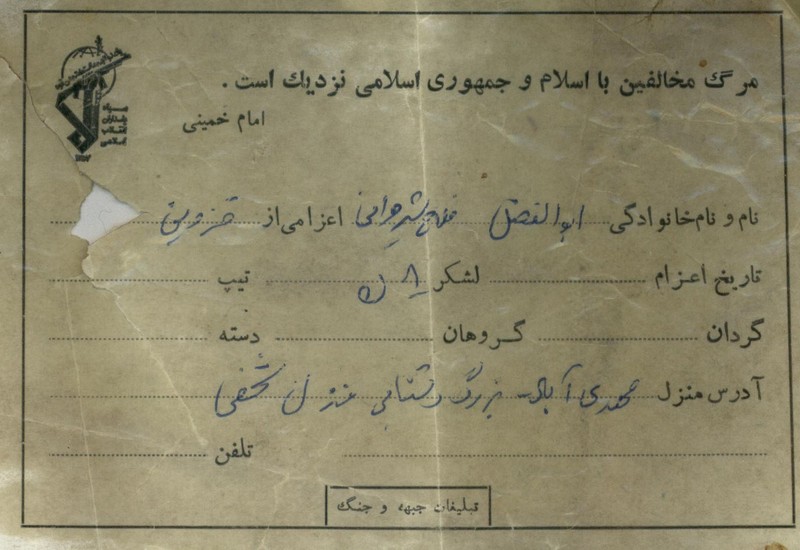 مرگ مخالفین با اسلام و جمهوری اسلامی نزدیك است .
امام خمینی
نام و نام خانوادگی ابوالفضل فلاح شیروانی اعزامی از قزوین
تاریخ اعزام لشکر ۸ ن تیپ
گردان گروهان دسته
آدرس منزل محمدی آباد بزرگ دشتابی منزل شخصی
تلفن
تبلیغات جبهه و جنگ